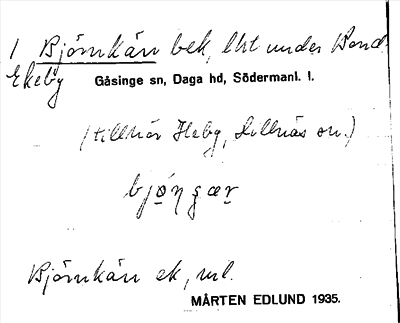 1 Björnkärr bek, lht under Bond
Ekeby
Gåsinge sn, Daga hd, Södermanl. l.
(tillhör Heby, Dillnäs sn.)
bjö́ŋçær
Björnkärr ek, ml.
MÅRTEN EDLUND 1935.